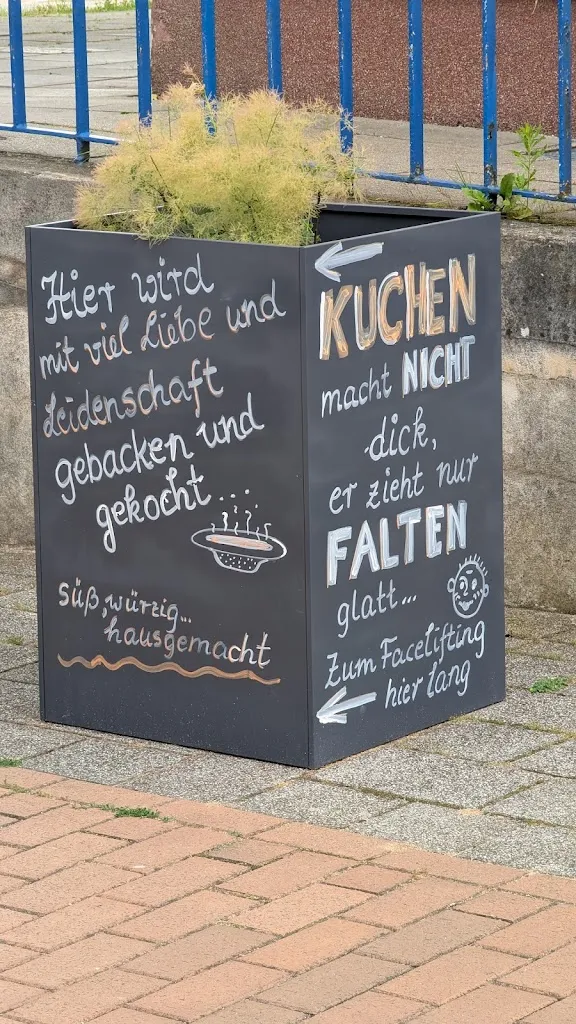 Hier wird
mit viel Liebe und
Leidenschaft
gebacken und
gekocht...
süß, würzig...
hausgemacht
KUCHEN
macht NICHT
dick,
er zieht nur
FALTEN
glatt...
Zum Facelifting
hier lang